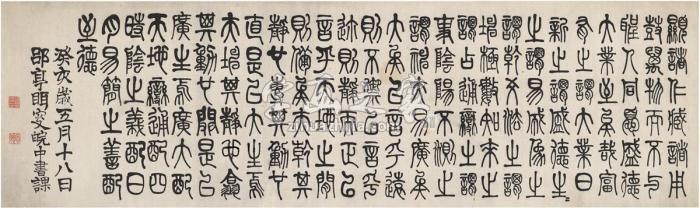 顯諸仁藏諸用
鼓萬物而不與
聖人同憂盛德
大業至矣哉富
有之謂大業日
新之謂盛德生
生之謂易成象
之謂乾爻法之
謂坤極數知來之
謂占通變之謂
事陰陽不測之
謂神夫易廣矣
大矣以言乎遠
則不禦以言乎
邇則靜而正以
言乎天地之間
則備矣夫乾其
靜也專其動也
直是以大生焉
夫坤其靜也翕
其動也闢是以
廣生焉廣大配
天地變通配四
時陰陽之義配日
月易簡之善配
至德
癸亥歲五月十八日
郘亭眲叟皖中書課